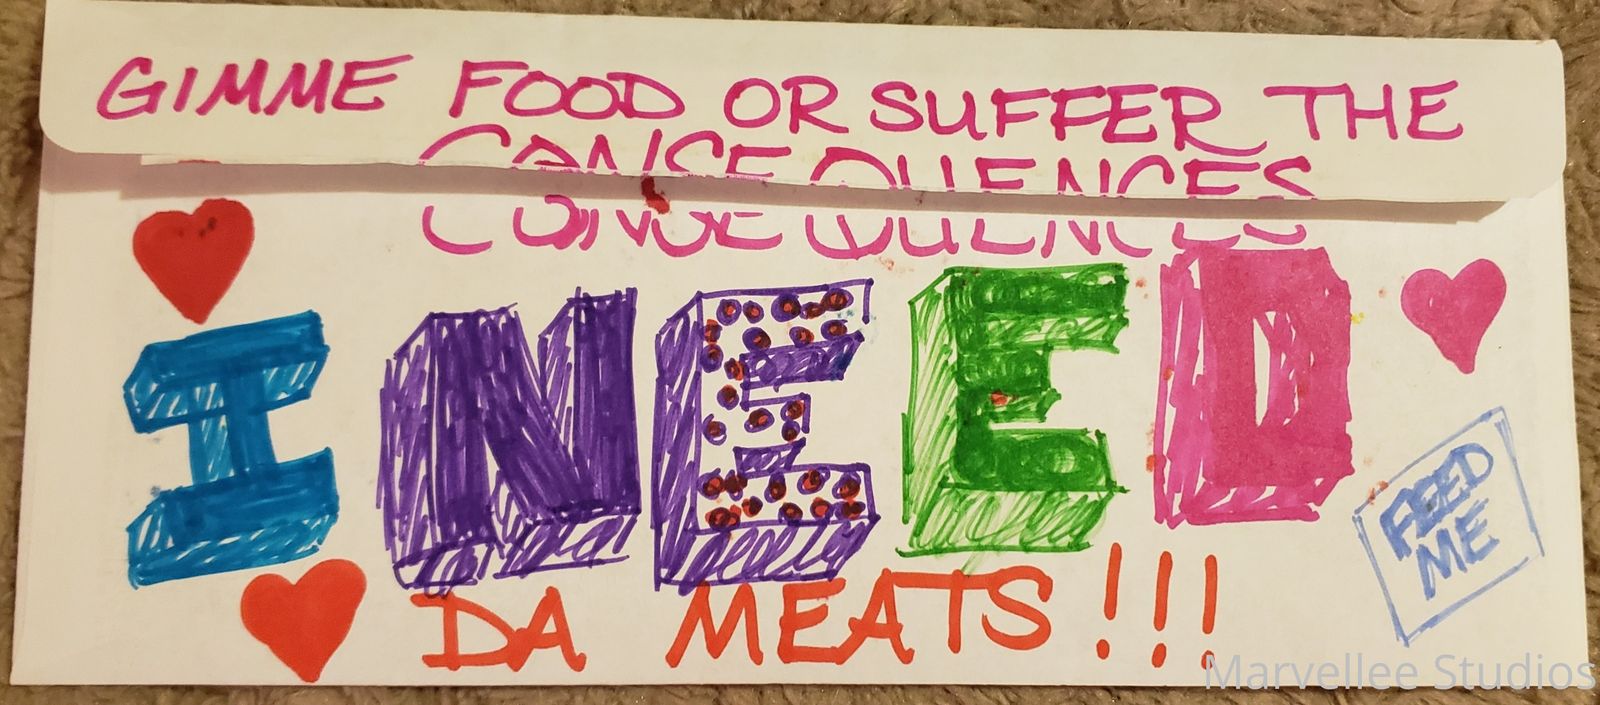 GIMME FOOD OR SUFFER THE
CONSEQUENCES
I NEED
FEED
ME
DA MEATS!!!
Marvellee Studios